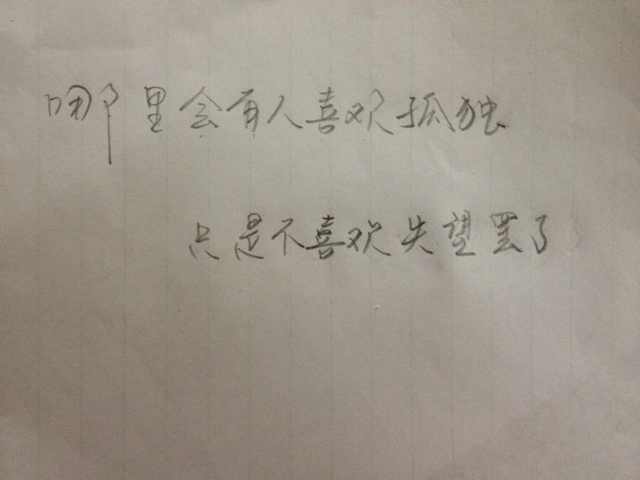 哪里会有人喜欢孤独
只是不喜欢失望罢了